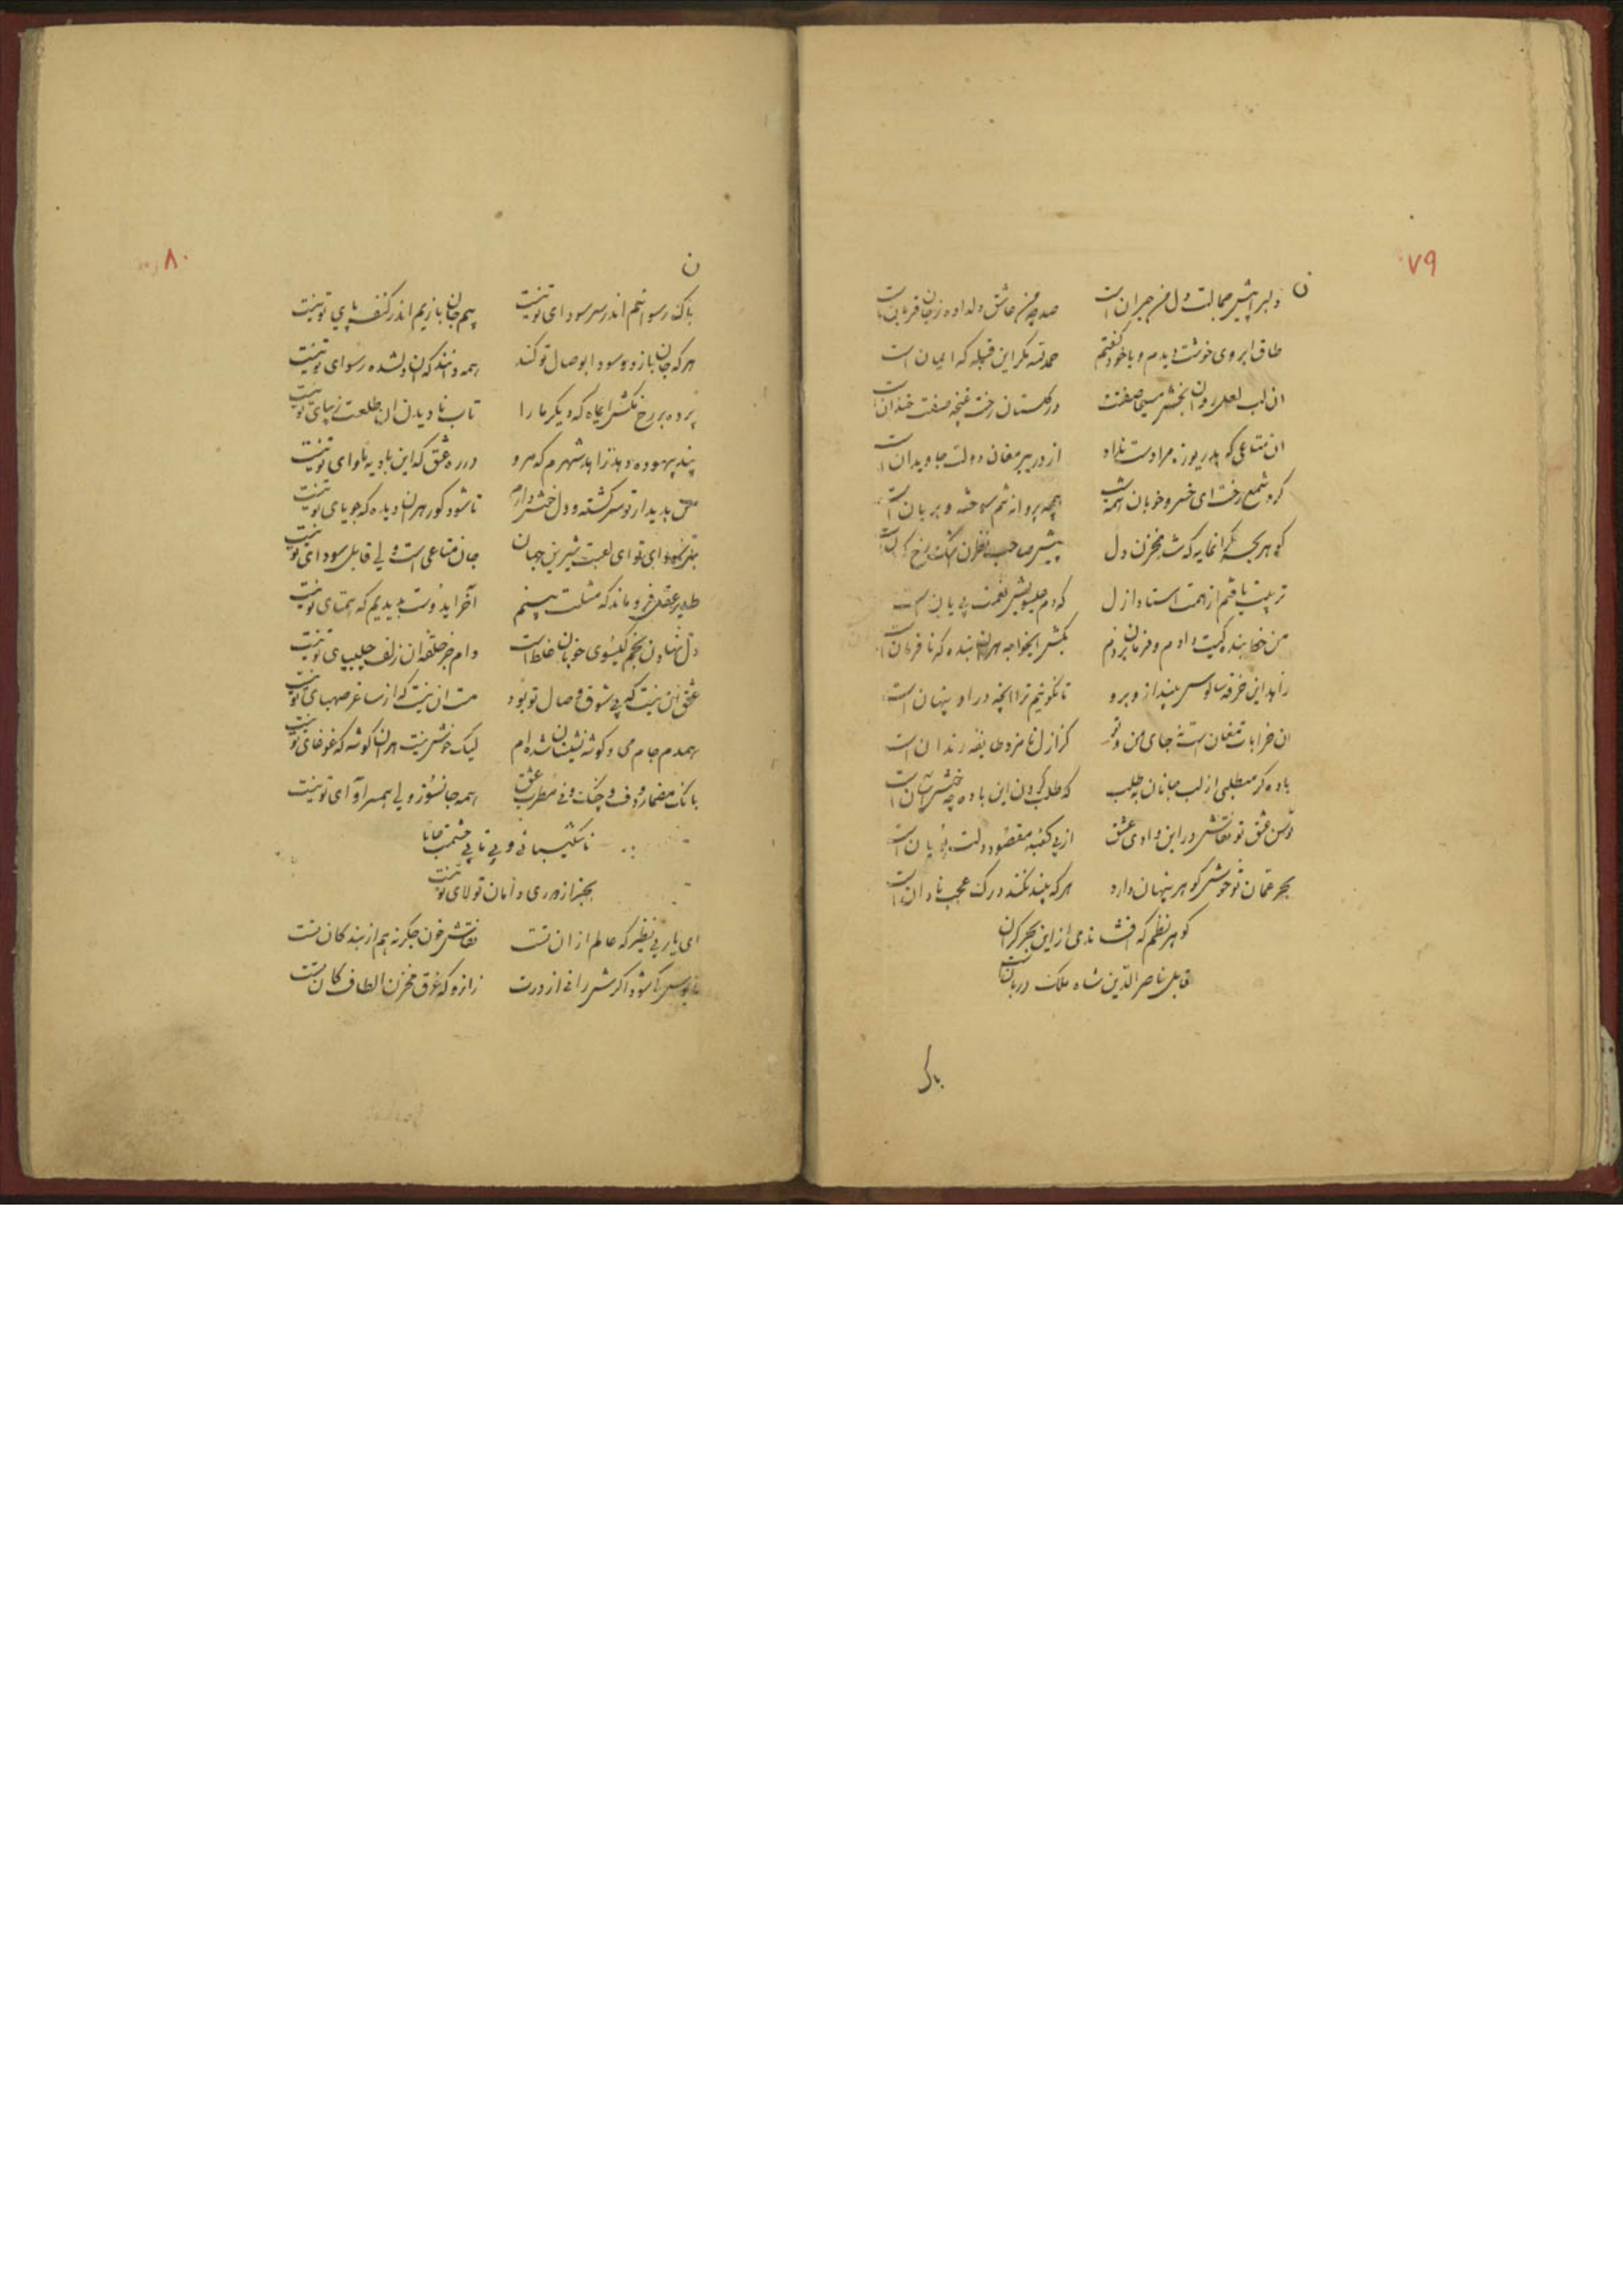 ۷۹
ن
دلبرا پیش جمالت دل من حیران است صد چو من عاشق دلداده ز جان قربان است
طاق ابروی خوشت دیدم و با خود گفتم حمدلله مگر این قبله که ایمان است
ان لب لعل روان بخش مسیحا صفتت در گلستان رخت غنچه صفت خندان است
ان متاعی که بدریوزه مرا دست نداد از در پیر مغان دولت جاویدان است
گرد شمع رخت ای خسرو خوبان همه شب همچو پروانه تنم سوخته و بریان است
گوهر گرانمایه که شد مخزن دل پیش صاحب نظران
تربیت یافتم از همت استاد ازل که دم
من خط بندکیت دادم و فرمان بردم بکش ایخواجه هر ان بنده که نافرمان است
زاهد این خرقه سالوس بینداز و برو تا نگوئیم ترا انچه در او پنهان است
ان خرابات مغان است نه جای من و تو کز ازل نامزد طایفه رندان است
باده گر میطلبی از لب جانان بطلب که طلب کردن این باده چه خوش است
توسن عشق تو نقاش در این وادی عشق از پی کعبه مقصود دلت پویان است
بحر عمان تو خوش گوهر پنهان دارد هر که پسند نکند درک عجب نادان است
گوهر نظم که افشاندمی از این بحر کران
قابل ناصر الدین شاه ملک دربان است
باک
۸۰
ن
باک رسوائیم اندر سر سودای تو نیست بیم جان بازیم اندر کنف پای تو نیست
هر که جان بازد و سودا بوصال تو کند همه دانند که ان دلشده رسوای تو نیست
پرده بر رخ بکش ایماه که دیگر ما را تاب نادیدن ان طلعت زیبای تو نیست
پند بیهوده مده زاهد شهرم که مرو در ره عشق که این بادیه ماوای تو نیست
بدیدار تو سرگشته و دل خوش دارم تا شود کور هر ان دیده که جویای تو نیست
تو ای لعبت شیرین جهان جان متاعی است ولی قابل سودای تو نیست
طایر عقل فرو ماند که مثلت بینم آخر ای دوست بدیدیم که همتای تو نیست
دل نهادن بخم گیسوی خوبان غلط است دام جز حلقه ان زلف چلیپای تو نیست
عشق ان نیست که بی شوق وصال تو بود مست ان نیست که از ساغر صهبای تو نیست
همدم جام می و گوشه نشینان شده ام لیک خوش نیست هر ان گوشه که غوغای تو نیست
بانک مضمار و دف و چنگ و نی مطرب عشق همه جانسوز ولی همسر آوای تو نیست
ناشکیبائی و بی تابی حشمت جانا
بجز از دوری دامان تولای تو نیست
ای یار بی نظیر که عالم از ان تست نقاش خون جگر نه هم از بندکان تست
شود اگرش رانی از درت زانرو که غرق مخزن الطاف کان تست